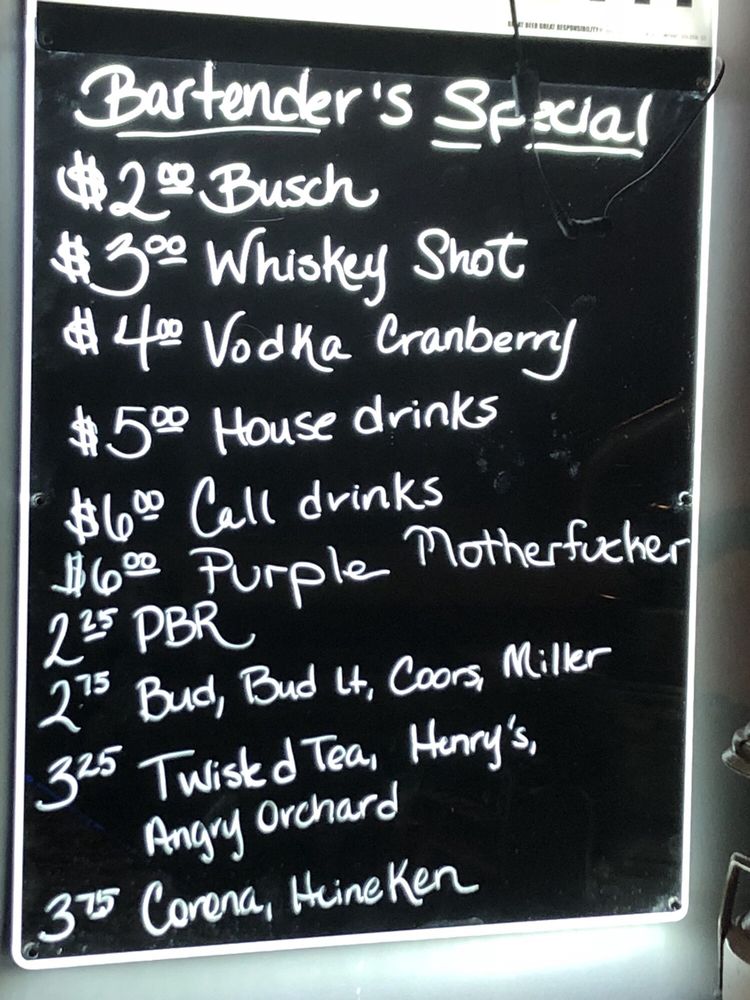 GREAT BEER GREAT RESPONSIBILITY
Bartender's Special
$2.00 Busch
$3.00 Whiskey Shot
$4.00 Vodka Cranberry
$5.00 House drinks
$6.00 Call drinks
$6.00 Purple Motherfucker
2.25 PBR
2.75 Bud, Bud Lt, Coors, Miller
3.25 Twisted Tea, Henry's,
Angry Orchard
3.75 Corona, Heineken